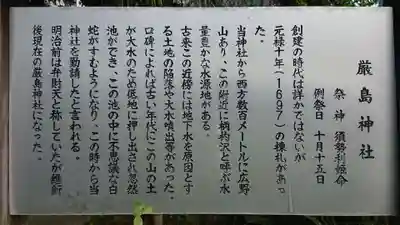 厳島神社
祭神 須勢利姫命
例祭日 十月十五日
創建の時代は詳かではないが
元禄十年(1697)の棟札があっ
た。
当神社から西方数百メートルに広野
山あり、この附近に柄杓沢と呼ぶ水
量豊かな水源地がある。
古来この近傍には地下水を原因とす
る土地の陥落や大水噴出等があった。
口碑によれば古い年代にこの山の土
が大水のため低地に押し出され忽然
池ができ、この池の中に不思議な白
蛇がすむようになり、この時から当
神社を勧請したと言われる。
明治前は弁財天と称していたが維新
後現在の厳島神社になった。